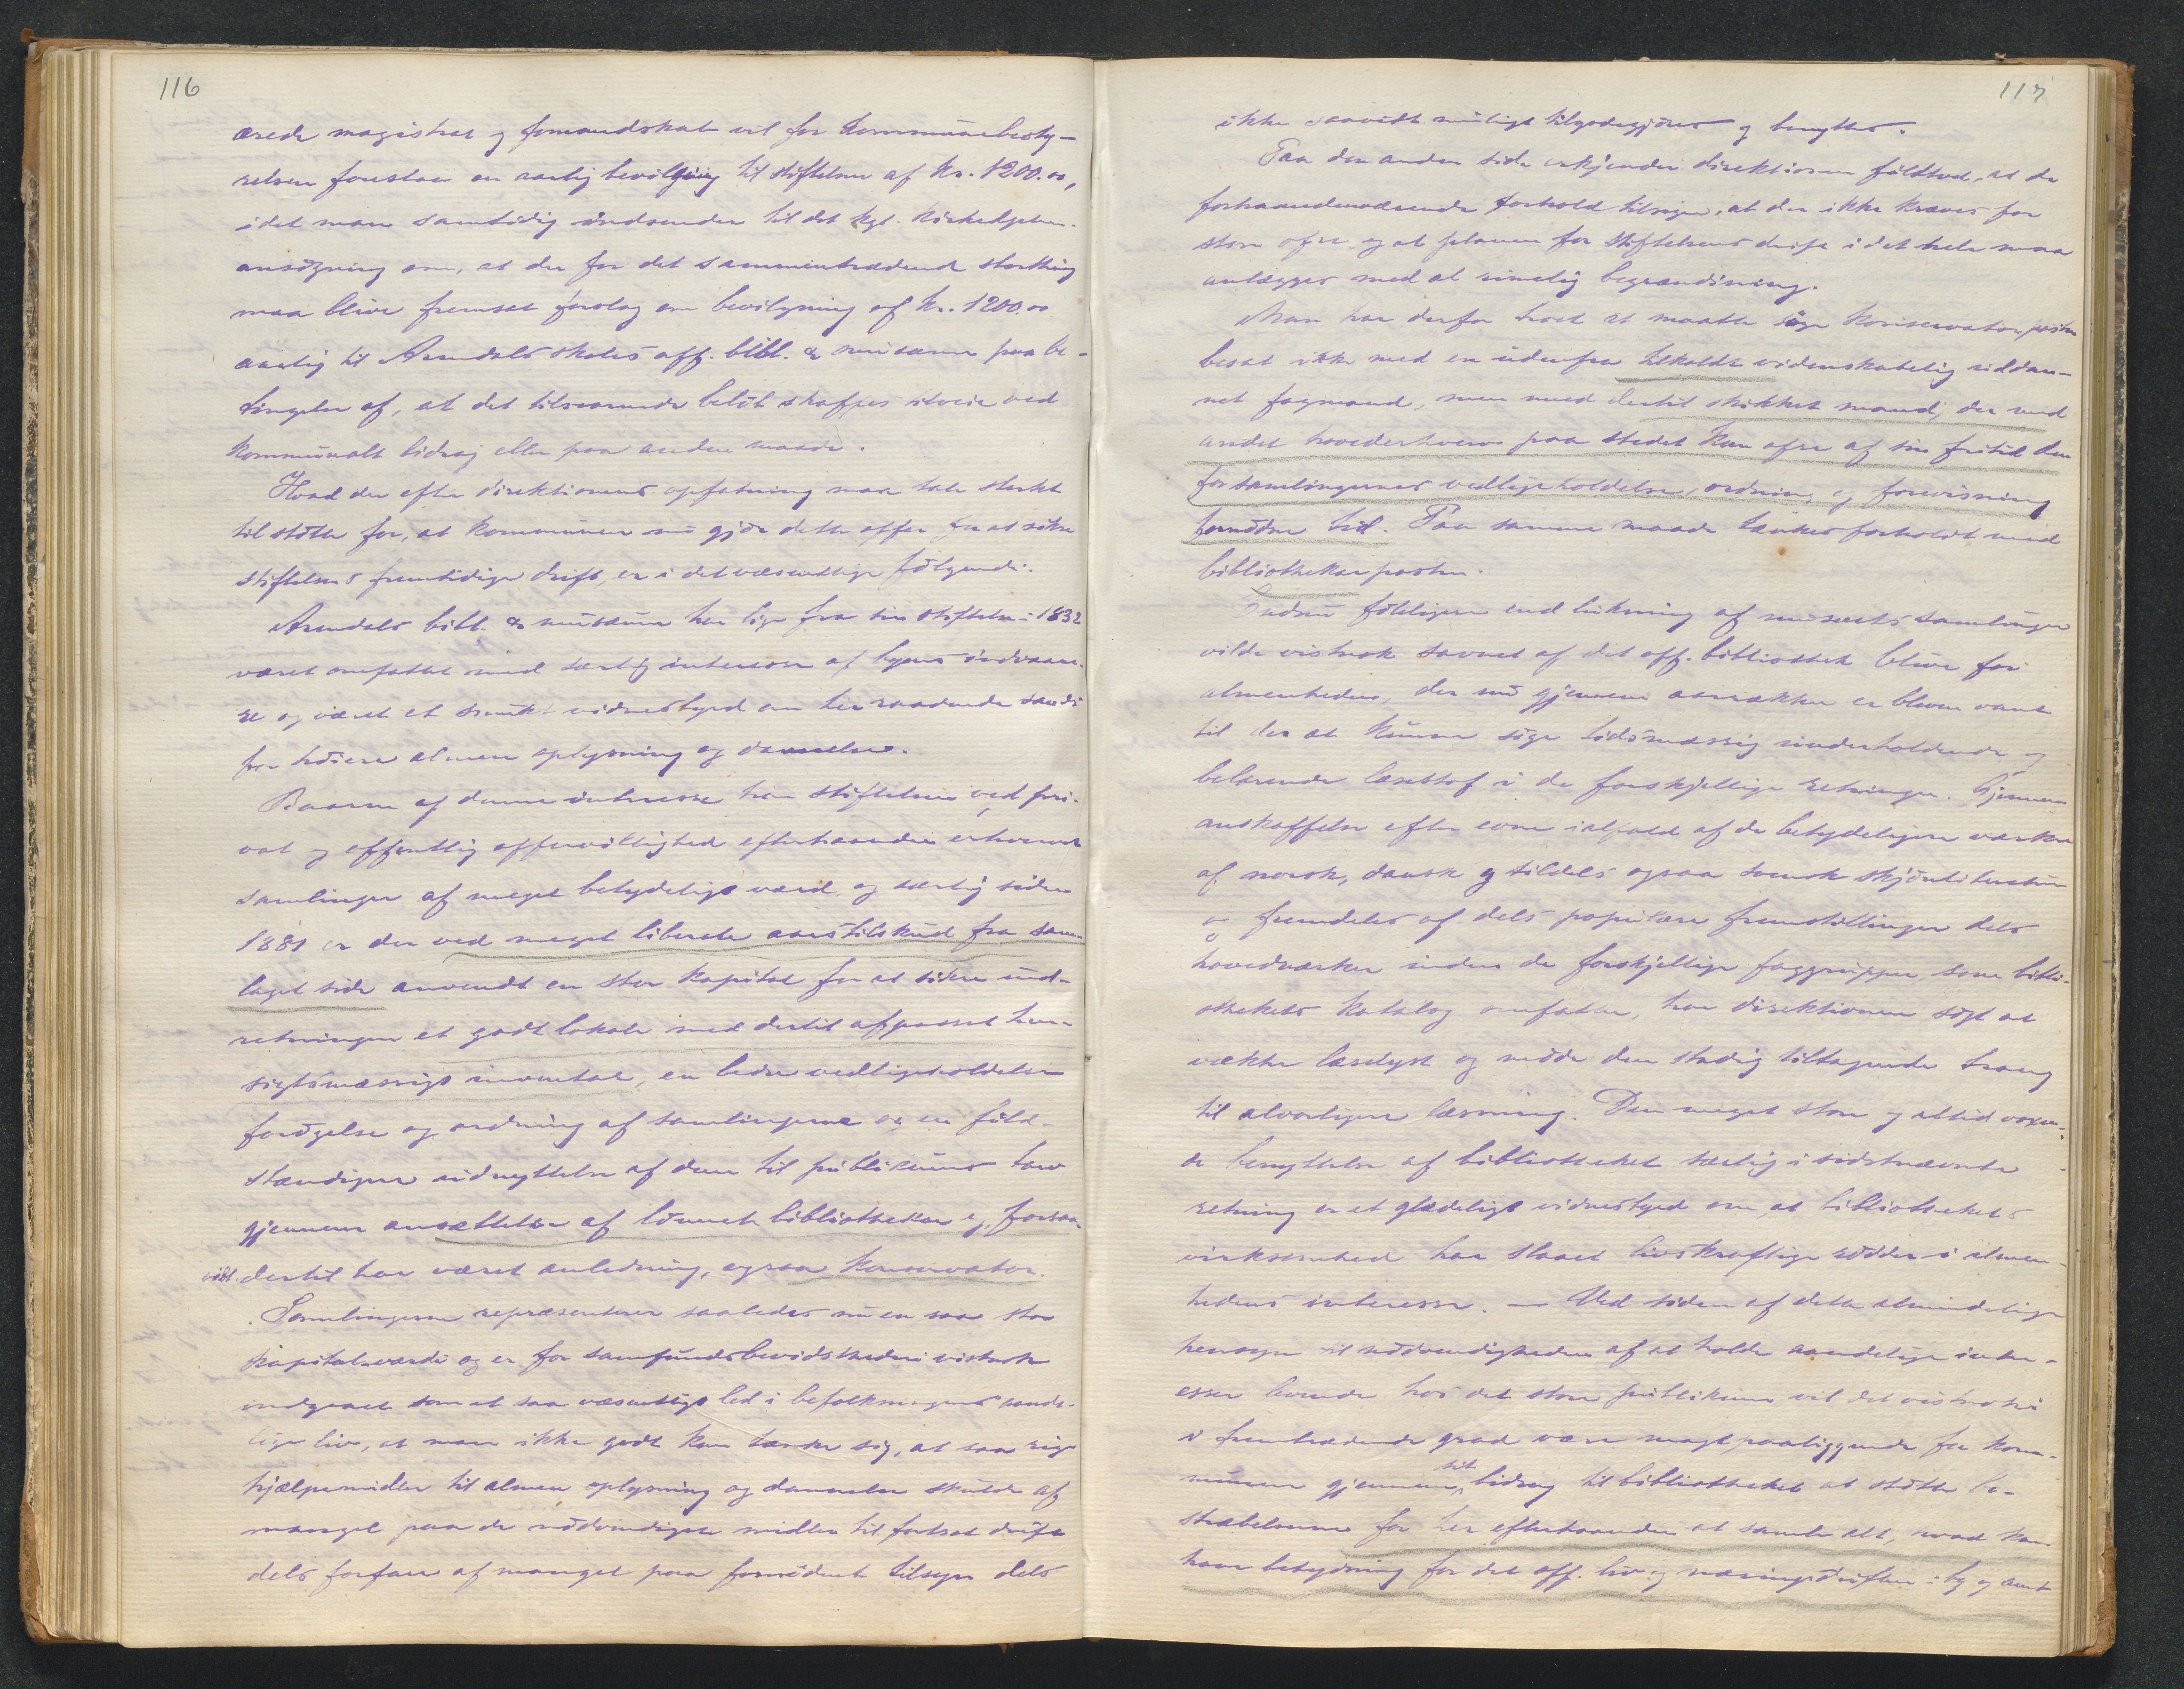 116
ærede magistrat og formandskab vil for kommunebesty-
relsen foreslaa en aarlig bevilgning til stiftelsen af kr. 1200.00,
idet man samtidig indsender til det kgl. kirkedeptm.
ansøgning om, at der for det sammentrædende storthing
maa blive fremsat forslag om bevilgning af kr. 1200.00
aarlig til Arendals skoles off. bibl. & musæum paa be-
tingelse af, at det tilsvarende beløb skaffes tilveie ved
kommunalt bidrag eller paa anden maade.
Hvad der efter direktionens opfatning maa tale sterkt
til støtte for, at kommunen nu gjør dette offer for at sikre
stiftelsens fremtidige drift, er i det væsentlige følgende:
Arendals bibl. & musæum har lige fra sin stiftelse i 1832
været omfattet med særlig interesse af byens indvaane-
re og været et smukt vidnesbyrd om her raadende sands
for høiere almen oplysning og dannelse.
Baaren af denne interesse har stiftelsen ved pri-
vat og offentlig offervillighed efterhaanden erhvervet
samlinger af meget betydeligt værd, og særlig siden
1881 er der ved meget liberale aarstilskud fra sam-
laget side anvendt en stor kapital for at sikre ind-
retningen et godt lokale med dertil afpasset hen-
sigtsmæssigt inventar, en bedre vedligeholdelse
forøgelse og ordning af samlingerne og en fuld-
stændigere udnyttelse af dem til publikums tarv
gjennem ansættelse af lønnet bibliothekar og, forsaa-
vidt dertil har været anledning, ogsaa konservator.
Samlingerne repræsenterer saaledes nu en saa stor
kapitalværdi og er for samfundsbevidstheden vistnok
indgaaet som et saa væsentligt led i befolkningens aande-
lige liv, at man ikke godt kan tænke sig, at saa rige
hjælpemidler til almen oplysning og dannelse skulde af
mangel paa de nødvendigste midler til fortsat drift
dels forfare af mangel paa fornødent tilsyn dels
117
ikke saavidt muligt tilgodegjøres og benyttes.
Paa den anden side erkjender direktionen fuldtud, at de
forhaandenværende forhold tilsiger, at der ikke kræves for
store ofre, og at planen for stiftelsens drift i det hele maa
anlægges med al rimelig begrændsning.
Man har derfor troet at maatte søge konservatorposten
besat ikke med en udenfra tilkaldt videnskabelig uddan-
net fagmand, men med dertil skikket mand, der med
andet hovederhverv paa stedet kan ofre af sin fritid den
for samlingernes vedligeholdelse, ordning og forevisning
fornødne tid. Paa samme maade tænkes forholdt med
bibliothekarposten.
Endnu føleligere end lukning af musæets samlinger
vilde vistnok savnet af det off. bibliothek blive for
almenheden, der nu gjennem aarrækker er bleven vant
til der at kunne søge tidsmæssig underholdende og
belærende læsestof i de forskjellige retninger. Gjennem
anskaffelse efter evne ialfald af de betydeligere værker
af norsk, dansk og tildels ogsaa svensk skjønliteratur
og fremdeles af dels populære fremstillinger dels
hovedværker inden de forskjellige faggrupper som biblio-
thekets katalog omfatter, har direktionen søgt at
vække læselyst og møde den stadig tiltagende trang
til alvorligere læsning. Den meget store og altid voxen-
de benyttelse af bibliotheket særlig i sidstnævnte
retning er et glædeligt vidnesbyrd om at bibliothekets
virksomhed har slaaet livskraftige rødder i almen-
hedens interesse. — Ved siden af dette almindelige
hensyn til nødvendigheden af at holde aandelige inter-
esser levende hos det store publikum vil det vistnok
i fremtrædende grad være magtpaaliggende for kom-
munen gjennem sit bidrag til bibliotheket at støtte be-
stræbelserne for her efterhaanden at samle alt, hvad kan
have betydning for det off. liv og næringsdriften i by og amt